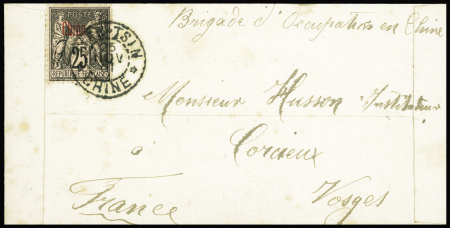 Brigade d'Occupation en Chine
POSTE
Chine
25
RÉPUBLIQUE FRANÇAISE
TSIN
CHINE
Monsieur Husson Instituteur
à
Corcieux
Vosges
France